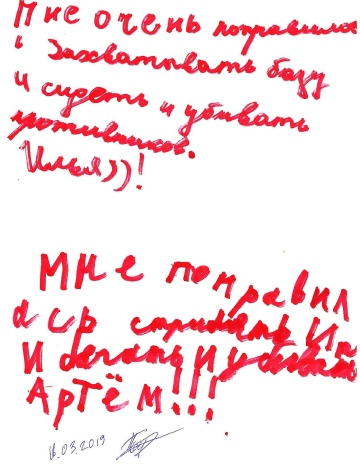 Мне очень понравилос
ь захватывать базу
и сидеть и убивать
противников.
Илья))!
Мне понравил
ася стрилять
И бегать И убиват
Артём!!!
16.03.2019